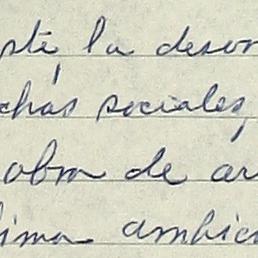 pté, la desor
chas sociales,
obra de ar
lima ambici